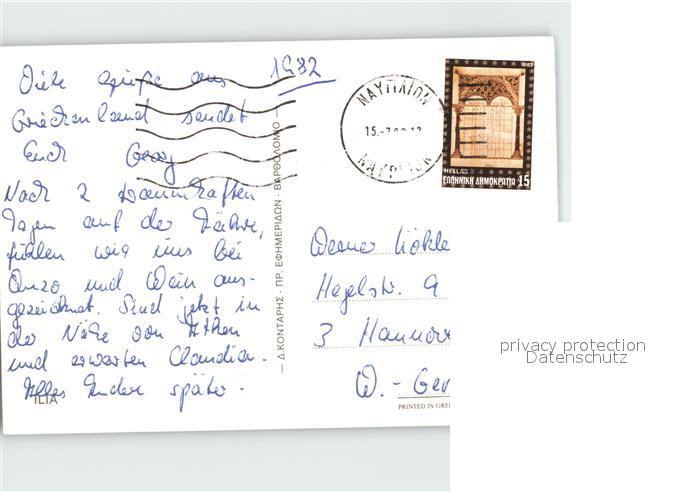 Viele Grüße aus 1982
Griechenland sendet
Euch Georg
Nach 2 traumhaften
Tagen auf der Fähre,
fühlen wir uns bei
Ouzo und Wein aus-
gezeichnet. Sind jetzt in
der Nähe von Athen
und erwarten Claudia.
Alles andere später.
ILIA
Δ. ΚΟΝΤΑΡΗΣ - ΠΡ. ΕΦΗΜΕΡΙΔΩΝ - ΒΑΡΘΟΛΟΜΙΟ
ΝΑΥΠΛΙΟΝ
15.-7.82.12
HELLAS
ΕΛΛΗΝΙΚΗ ΔΗΜΟΚΡΑΤΙΑ 15
Werner
Hegelstr. 9
3 Hannov
W.-Ger
PRINTED IN GREE
privacy protection
Datenschutz